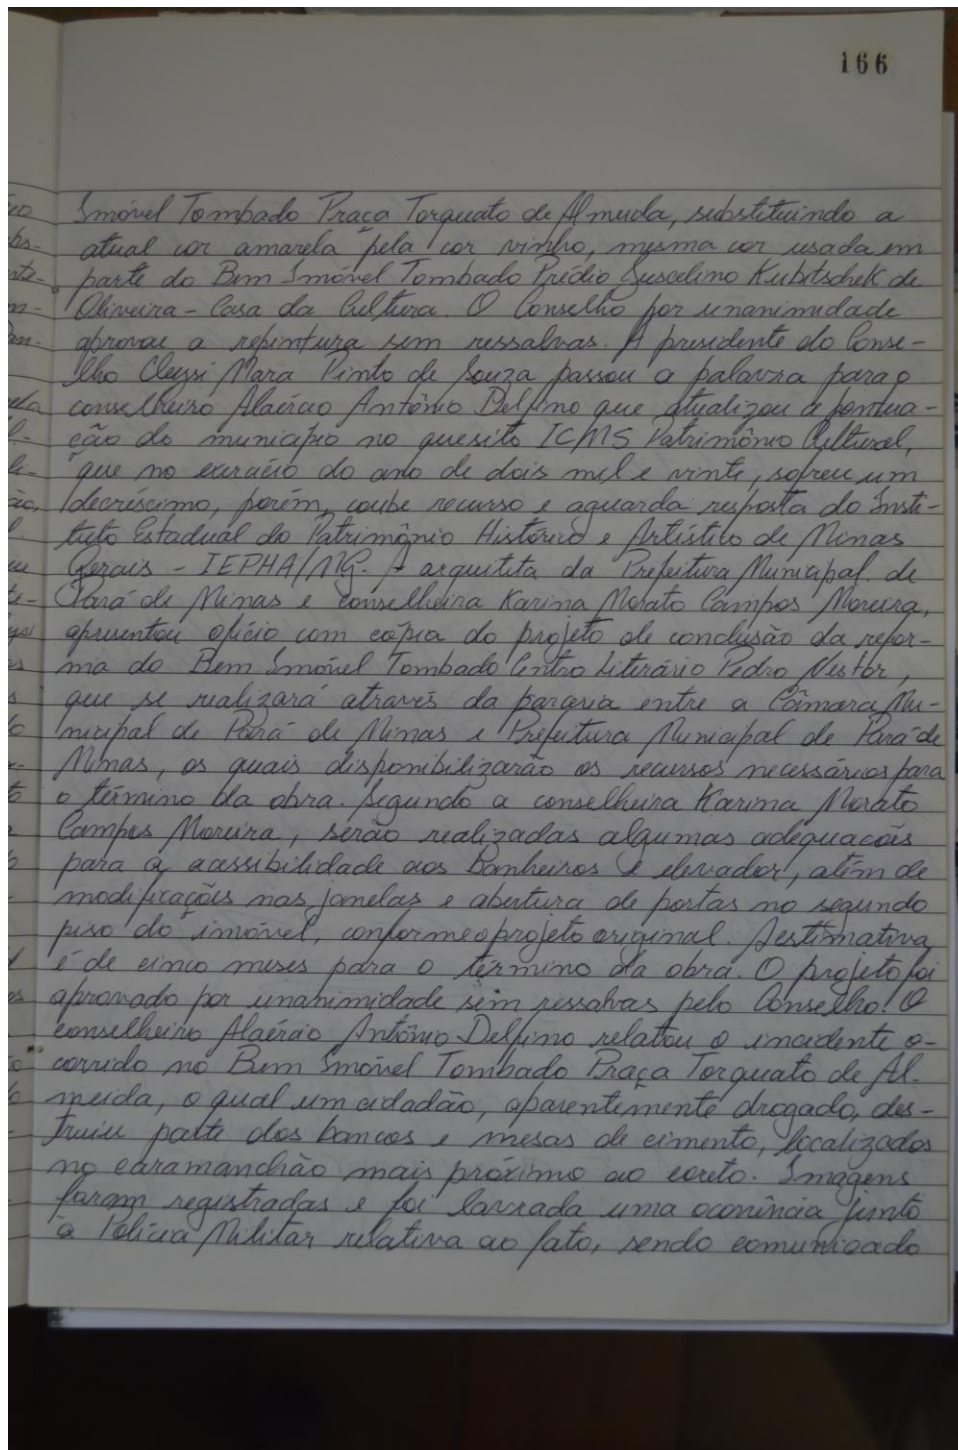 166
Imóvel Tombado Praça Torquato de Almeida, substituindo a
atual cor amarela pela cor vinho, mesma cor usada em
parte do Bem Imóvel Tombado Prédio Juscelino Kubitschek de
Oliveira - Casa da Cultura. O Conselho por unanimidade
aprovou a repintura sem ressalvas. A presidente do Conse-
lho Cleyssi Mara Pinto de Souza passou a palavra para o
conselheiro Alaércio Antônio Delfino que atualizou a pontua-
ção do município no quesito ICMS Patrimônio Cultural,
que no exercício do ano de dois mil e vinte, sofreu um
decréscimo, porém, coube recurso e aguarda resposta do Insti-
tuto Estadual do Patrimônio Histórico e Artístico de Minas
Gerais - IEPHA/MG. A arquiteta da Prefeitura Municipal de
Pará de Minas e conselheira Karina Morato Campos Moreira,
apresentou ofício com cópia do projeto de conclusão da refor-
ma do Bem Imóvel Tombado Centro Literário Pedro Nestor,
que se realizará através da parceria entre a Câmara Mu-
nicipal de Pará de Minas e Prefeitura Municipal de Pará de
Minas, os quais disponibilizarão os recursos necessários para
o término da obra. Segundo a conselheira Karina Morato
Campos Moreira, serão realizadas algumas adequações
para a acessibilidade aos banheiros e elevador, além de
modificações nas janelas e abertura de portas no segundo
piso do imóvel, conforme o projeto original. A estimativa
é de cinco meses para o término da obra. O projeto foi
aprovado por unanimidade sem ressalvas pelo Conselho. O
conselheiro Alaércio Antônio Delfino relatou o incidente o-
corrido no Bem Imóvel Tombado Praça Torquato de Al-
meida, o qual um cidadão, aparentemente drogado, des-
truiu parte dos bancos e mesas de cimento, localizados
no caramanchão mais próximo ao coreto. Imagens
foram registradas e foi lavrada uma ocorrência junto
a Polícia Militar relativa ao fato, sendo comunicado